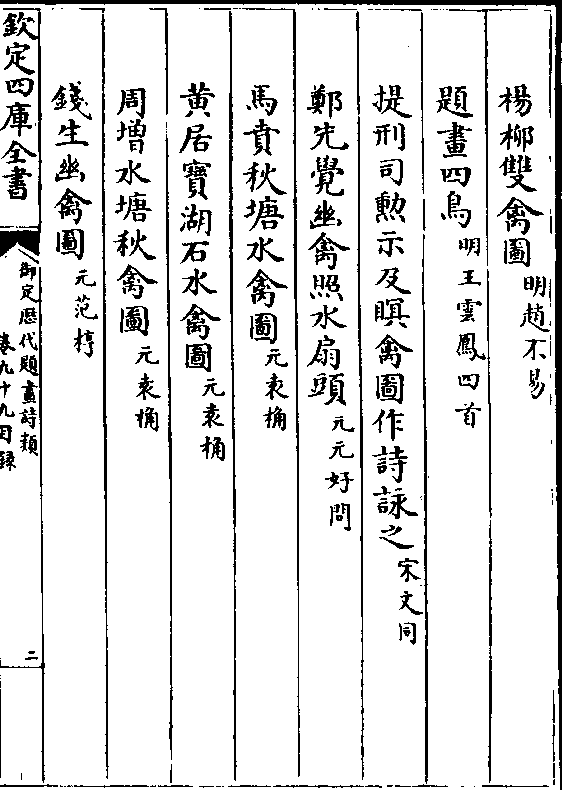 楊柳雙禽圖明趙不易
題畫四鳥明王雲鳳四首
提刑司勲示及暝禽圖作詩詠之宋文同
鄭先覺幽禽照水扇頭元元好問
馬賁秋塘水禽圖元袁桷
黄居寶湖石水禽圖元袁桷
周增水塘秋禽圖元袁桷
錢生幽禽圖元范梈
欽定四庫全書
御定歴代題畫詩類
卷九十九目録
二